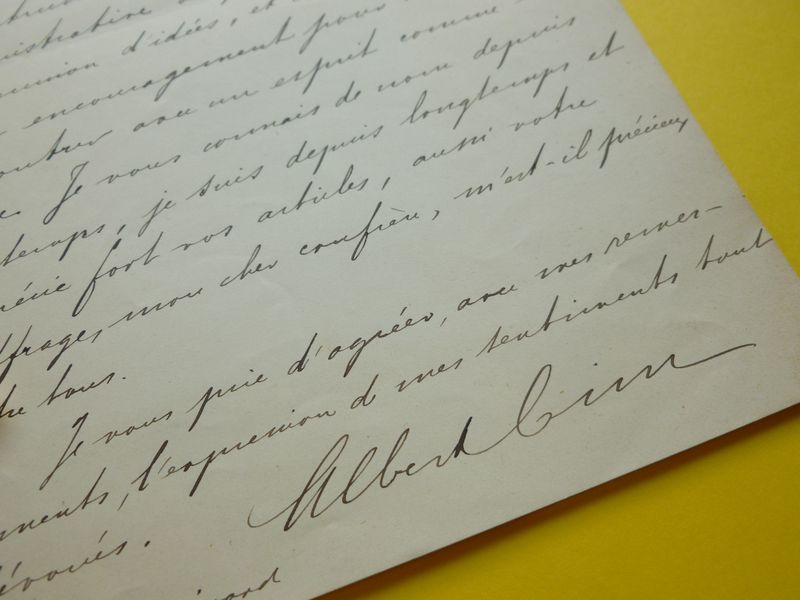 d'idées, et
encouragement pour
avec un esprit comme
Je vous connais de nom depuis
temps, je suis depuis longtemps et
fort vos articles, aussi votre
mon cher confrère, m'est-il précieux
tous.
Je vous prie d'agréer, avec mes remer-
ments, l'expression de mes sentiments tout
évoués.
Albert Cim